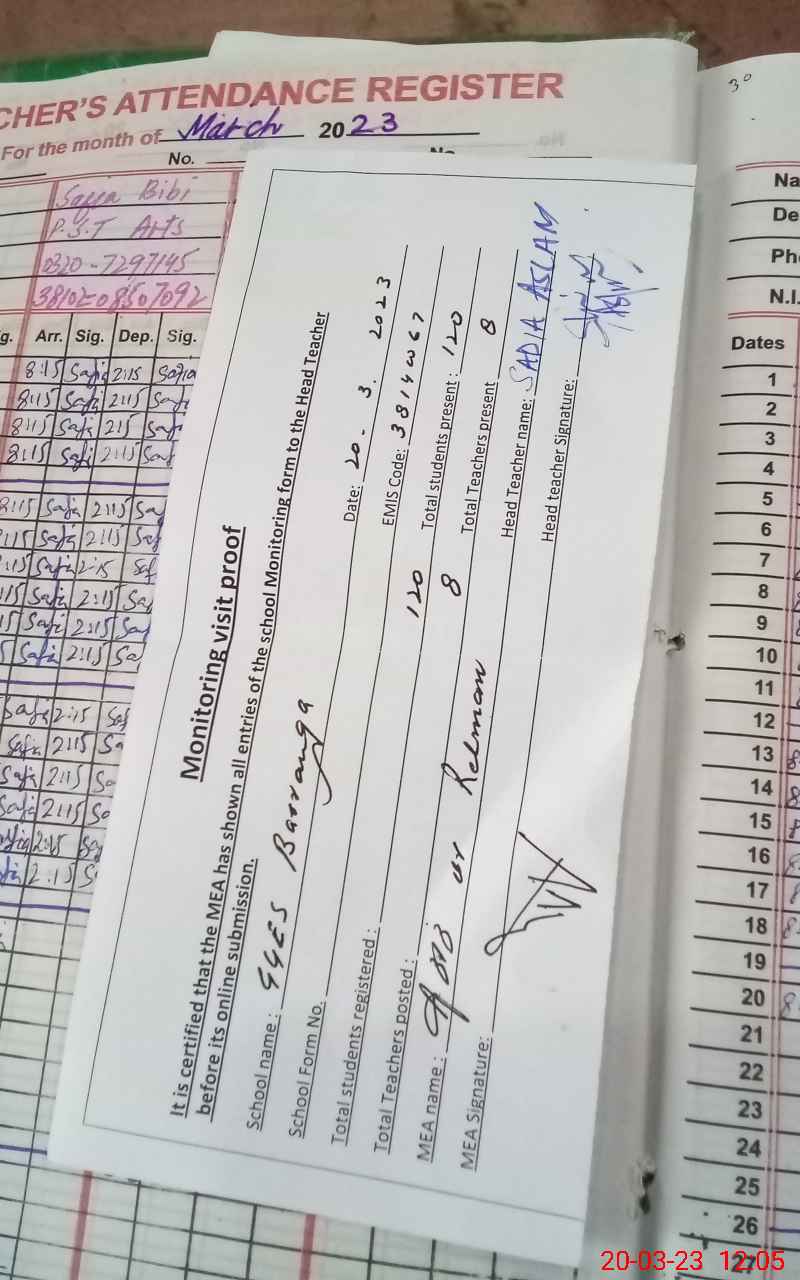 CHER'S ATTENDANCE REGISTER
For the month of March 2023
No.
Safia Bibi
P.S.T Arts
0320-7297145
38102-08507092
g. Arr. Sig. Dep. Sig.
8:15 Safia 2:15 Safia
8:15 Safia 2:15 Safi
8:15 Safia 2:15 Safi
8:15 Safia 2:15 Saf
8:15 Safia 2:15 Sa
:15 Safia 2:15 Sa
:15 Safia 2:15 Saf
:15 Safia 2:15 Sa
15 Safia 2:15 Sa
5 Safia 2:15 Sa
Safia 2:15 Saf
Safia 2:15 Sa
Safia 2:15 Sa
Safia 2:15 Sa
2:15 Sa
2:15 S
Monitoring visit proof
It is certified that the MEA has shown all entries of the school Monitoring form to the Head Teacher
before its online submission.
School name: GGES Barranga Date: 20-3. 2023
School Form No. EMIS Code:
Total students registered: 120 Total students present: 120
Total Teachers posted: 8 Total Teachers present 8
MEA name: ur Rehman Head Teacher name: SADIA ASLAM
MEA Signature: Head teacher Signature:
30
Na
De
Ph
N.I.
Dates
1
2
3
4
5
6
7
8
9
10
11
12
13 8
14 8
15 8
16 8
17 8
18 8
19
20 8
21
22
23
24
25
26
27
20-03-23 12:05